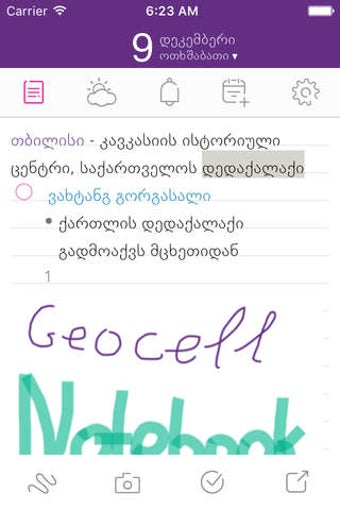 Carrier 6:23 AM
9 დეკემბერი
ოთხშაბათი ▾
თბილისი - კავკასიის ისტორიული
ცენტრი, საქართველოს დედაქალაქი
ვახტანგ გორგასალი
• ქართლის დედაქალაქი
გადმოაქვს მცხეთიდან
1
Geocell
Notebook